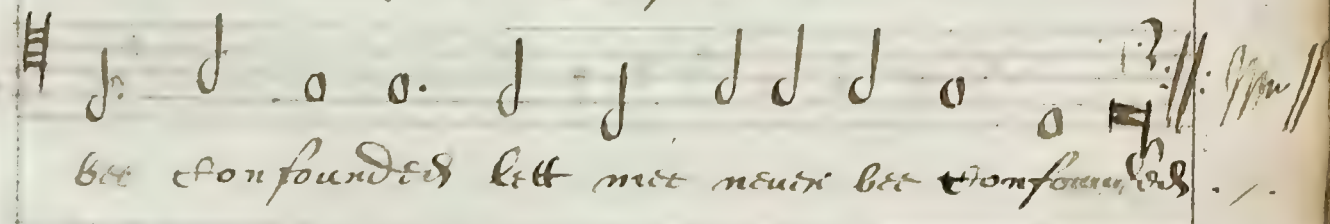 bee Confounded lett mee neuer bee Confounded